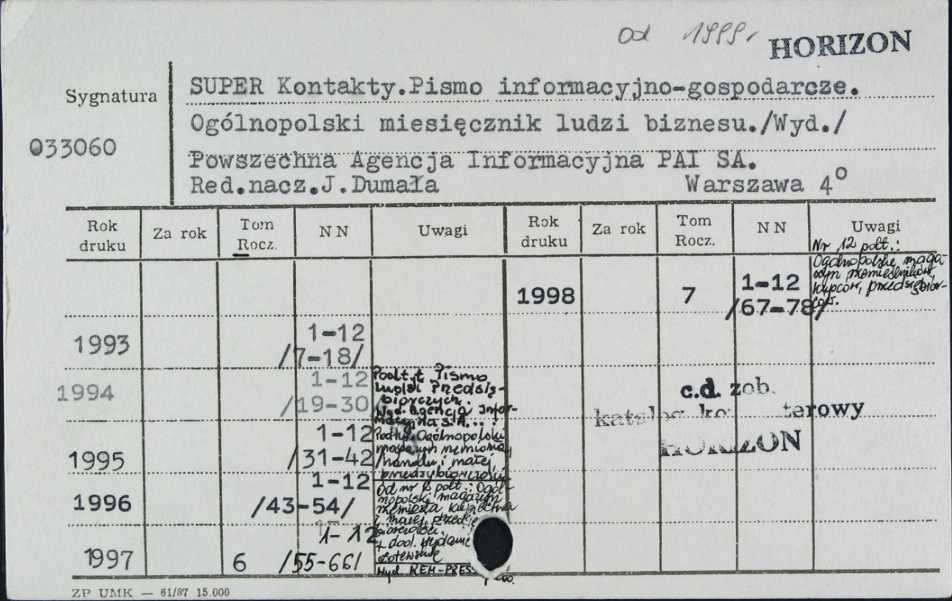 od 1999r
HORIZON
Sygnatura
033060
SUPER Kontakty.Pismo informacyjno-gospodarcze.
Ogólnopolski miesięcznik ludzi biznesu./Wyd./
Powszechna Agencja Informacyjna PAI SA.
Red.nacz.J.Dumała Warszawa 4°
Rok druku Za rok Tom Rocz. NN Uwagi Rok druku Za rok Tom Rocz. NN Uwagi
Nr 12 podt.:
kupców,
1998 7 1-12 /67-78/
1993 1-12 /7-18/
1994 1-12 /19-30/
Podtyt Pismo
ludzi Przedsię-
biorczych.
Wyd. Agencja Infor-
1995 1-12 /31-42/
Podtyt. Ogólnopolski
handlu i małej
przedsiębiorczości
1996 1-12 /43-54/
Od nr podt.: Ogól-
nopolski magazyn
i małej
1997 6 1-12 /55-66/
z dod.
Wyd. KEM-PRESS
c.d. zob.
katalog terowy
HORIZON
ZP UMK — 61/87 15.000